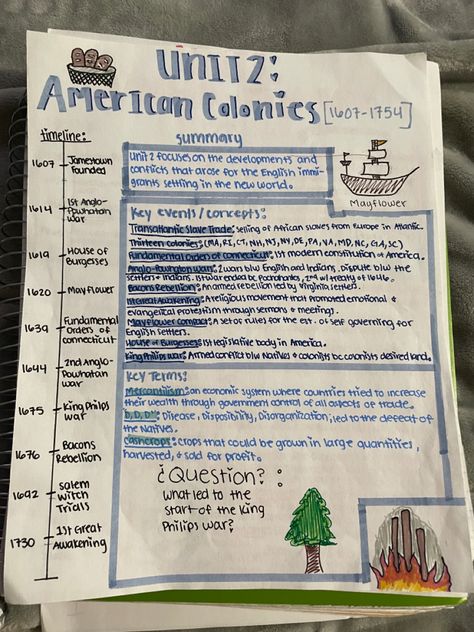 Unit 2:
American Colonies [1607-1754]
timeline:
1607 Jamestown founded
1614 1st Anglo-Powhatan war
1619 House of Burgesses
1620 Mayflower
1639 Fundamental Orders of Connecticut
1644 2nd Anglo-Powhatan war
1675 King Philips war
1676 Bacons Rebellion
1692 Salem Witch Trials
1730 1st Great Awakening
summary
Unit 2 focuses on the developments and
conflicts that arose for the English immi-
grants settling in the new world.
Mayflower
Key events/concepts:
Transatlantic Slave Trade: selling of African slaves from Europe in Atlantic.
Thirteen Colonies: (MA, RI, CT, NH, NJ, NY, DE, PA, VA, MD, NC, GA, SC)
Fundamental Orders of Connecticut: 1st modern constitution of America.
Anglo-Powhatan Wars: 2 wars b/w English and Indians, dispute b/w the
settlers & Indians. 1st war ended bc Pocahontas, 2nd w/ treaty of 1646.
Bacons Rebellion: an armed rebellion led by Virginia settlers.
1st Great Awakening: A religious movement that promoted emotional &
evangelical protestism through sermons & meetings.
Mayflower Compact: A set of rules for the est. of self governing for
English settlers.
House of Burgesses: 1st legislative body in America.
King Philips War: Armed conflict b/w Natives & colonists bc colonists desired land.
Key Terms:
Mercantilism: an economic system where countries tried to increase
their wealth through government control of all aspects of trade.
"D, D, D": Disease, Disposibility, Disorganization; led to the defeat of
the Natives.
Cashcrops: crops that could be grown in large quantities,
harvested, & sold for profit.
¿Question?:
What led to the
start of the King
Philips war?